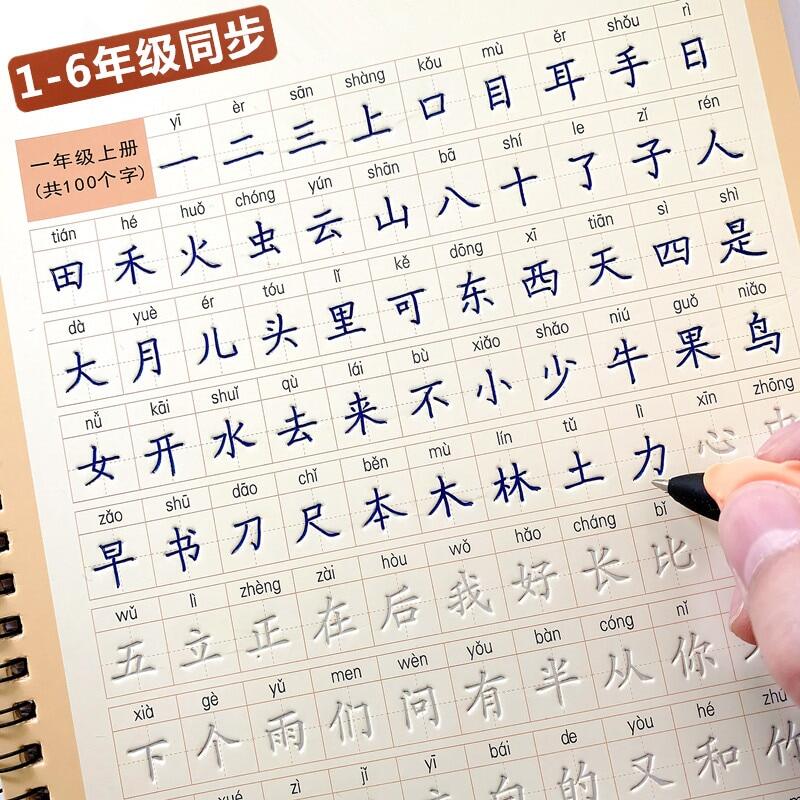 1-6年级同步
yī èr sān shàng kǒu mù ěr shǒu rì
一年级上册
(共100个字)
一 二 三 上 口 目 耳 手 日
tián hé huǒ chóng yún shān bā shí le zǐ rén
田 禾 火 虫 云 山 八 十 了 子 人
dà yuè ér tóu lǐ kě dōng xī tiān sì shì
大 月 儿 头 里 可 东 西 天 四 是
nǚ kāi shuǐ qù lái bù xiǎo shǎo niú guǒ niǎo
女 开 水 去 来 不 小 少 牛 果 鸟
zǎo shū dāo chǐ běn mù lín tǔ lì xīn zhōng
早 书 刀 尺 本 木 林 土 力 心
wǔ lì zhèng zài hòu wǒ hǎo cháng bǐ
五 立 正 在 后 我 好 长 比
xià gè yǔ men wèn yǒu bàn cóng nǐ
下 个 雨 们 问 有 半 从 你
xué zì jǐ yī bái de yòu hé zhú
白 的 又 和 竹